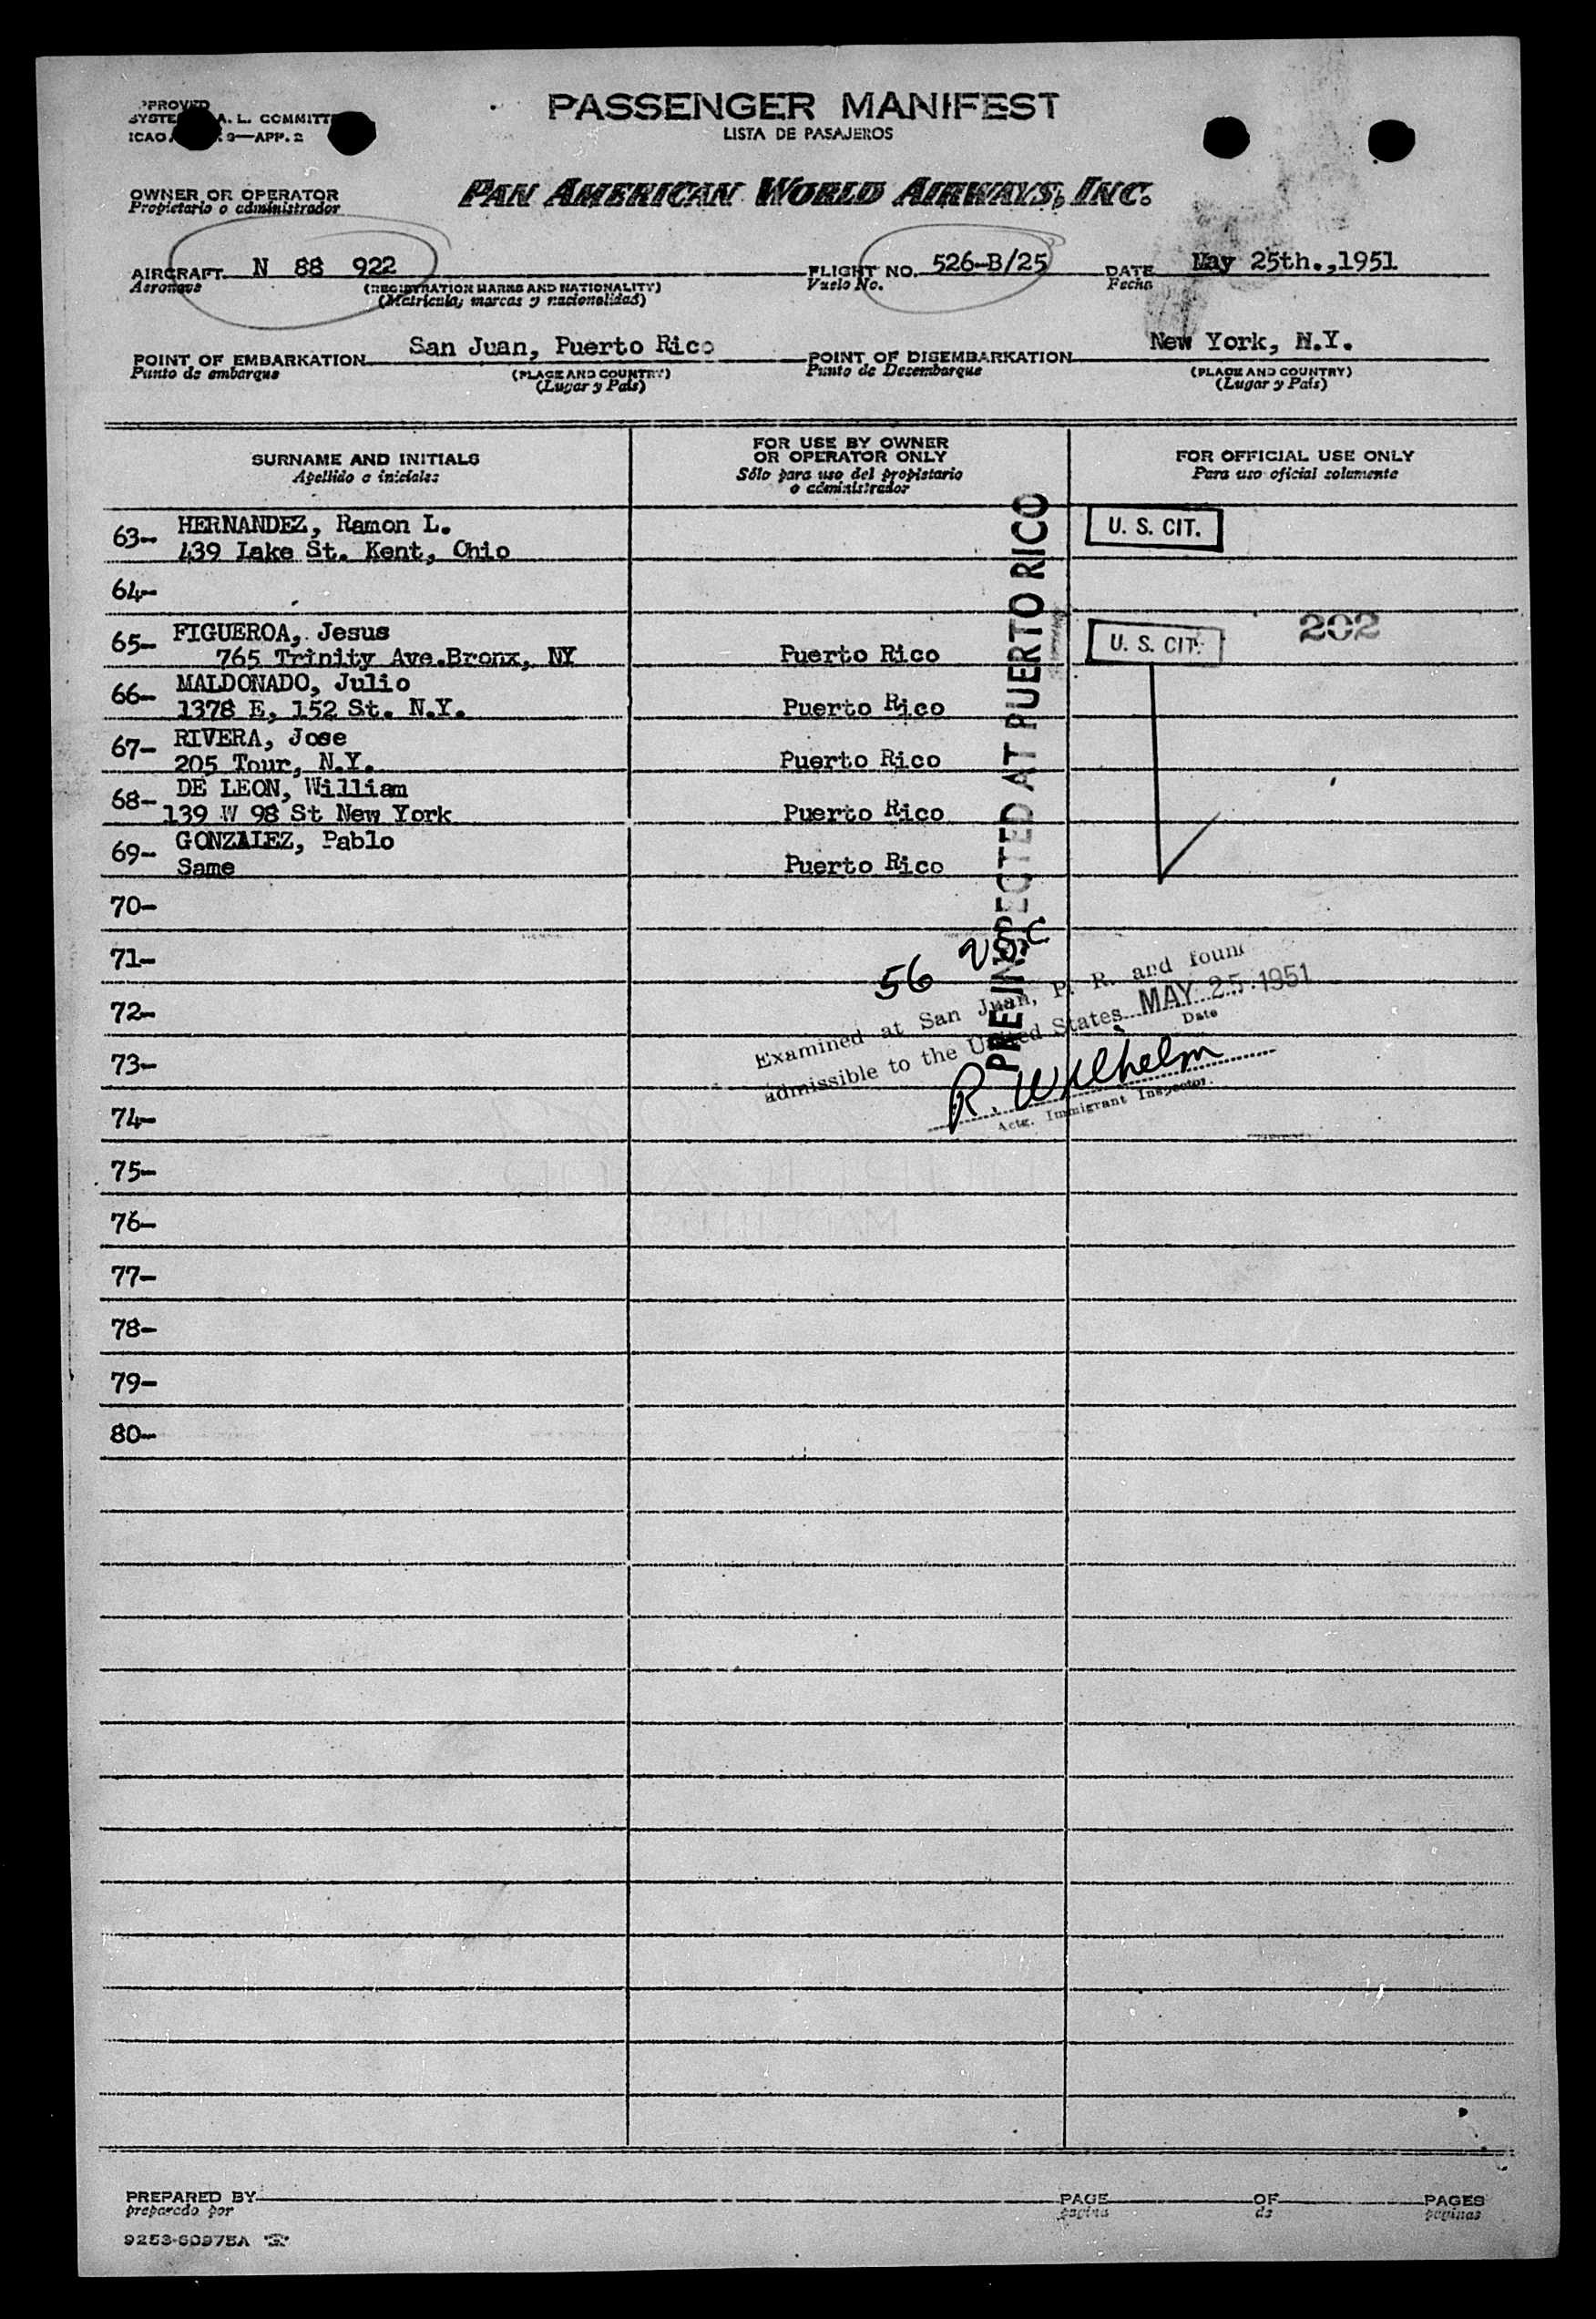 PASSENGER MANIFEST
LISTA DE PASAJEROS
A. L. COMMITT
ICAO 9—APP. 2
OWNER OR OPERATOR
Propietario o administrador
PAN AMERICAN WORLD AIRWAYS, INC.
AIRCRAFT N 88 922
Aeronave
(REGISTRATION MARKS AND NATIONALITY)
(Matrícula, marcas y nacionalidad)
FLIGHT NO. 526-B/25
Vuelo No.
DATE May 25th.,1951
Fecha
POINT OF EMBARKATION San Juan, Puerto Rico
Punto de embarque
(PLACE AND COUNTRY)
(Lugar y País)
POINT OF DISEMBARKATION New York, N.Y.
Punto de Desembarque
(PLACE AND COUNTRY)
(Lugar y País)
SURNAME AND INITIALS
Apellido o iniciales
FOR USE BY OWNER
OR OPERATOR ONLY
Sólo para uso del propietario
o administrador
FOR OFFICIAL USE ONLY
Para uso oficial solamente
63- HERNANDEZ, Ramon L.
439 Lake St. Kent, Ohio
U. S. CIT.
64-
65- FIGUEROA, Jesus
765 Trinity Ave.Bronx, NY
Puerto Rico
U. S. CIT.
202
66- MALDONADO, Julio
1378 E, 152 St. N.Y.
Puerto Rico
67- RIVERA, Jose
205 Tour, N.Y.
Puerto Rico
68- DE LEON, William
139 W 98 St New York
Puerto Rico
69- GONZALEZ, Pablo
Same
Puerto Rico
PREINSPECTED AT PUERTO RICO
70-
71-
56 USC
72-
Examined at San Juan, P. R. and foun
admissible to the United States MAY 25 1951
Date
73-
R. Wilhelm
Actg. Immigrant Inspector.
74-
75-
76-
77-
78-
79-
80-
PREPARED BY
preparado por
PAGE OF PAGES
página de páginas
9253-60975A